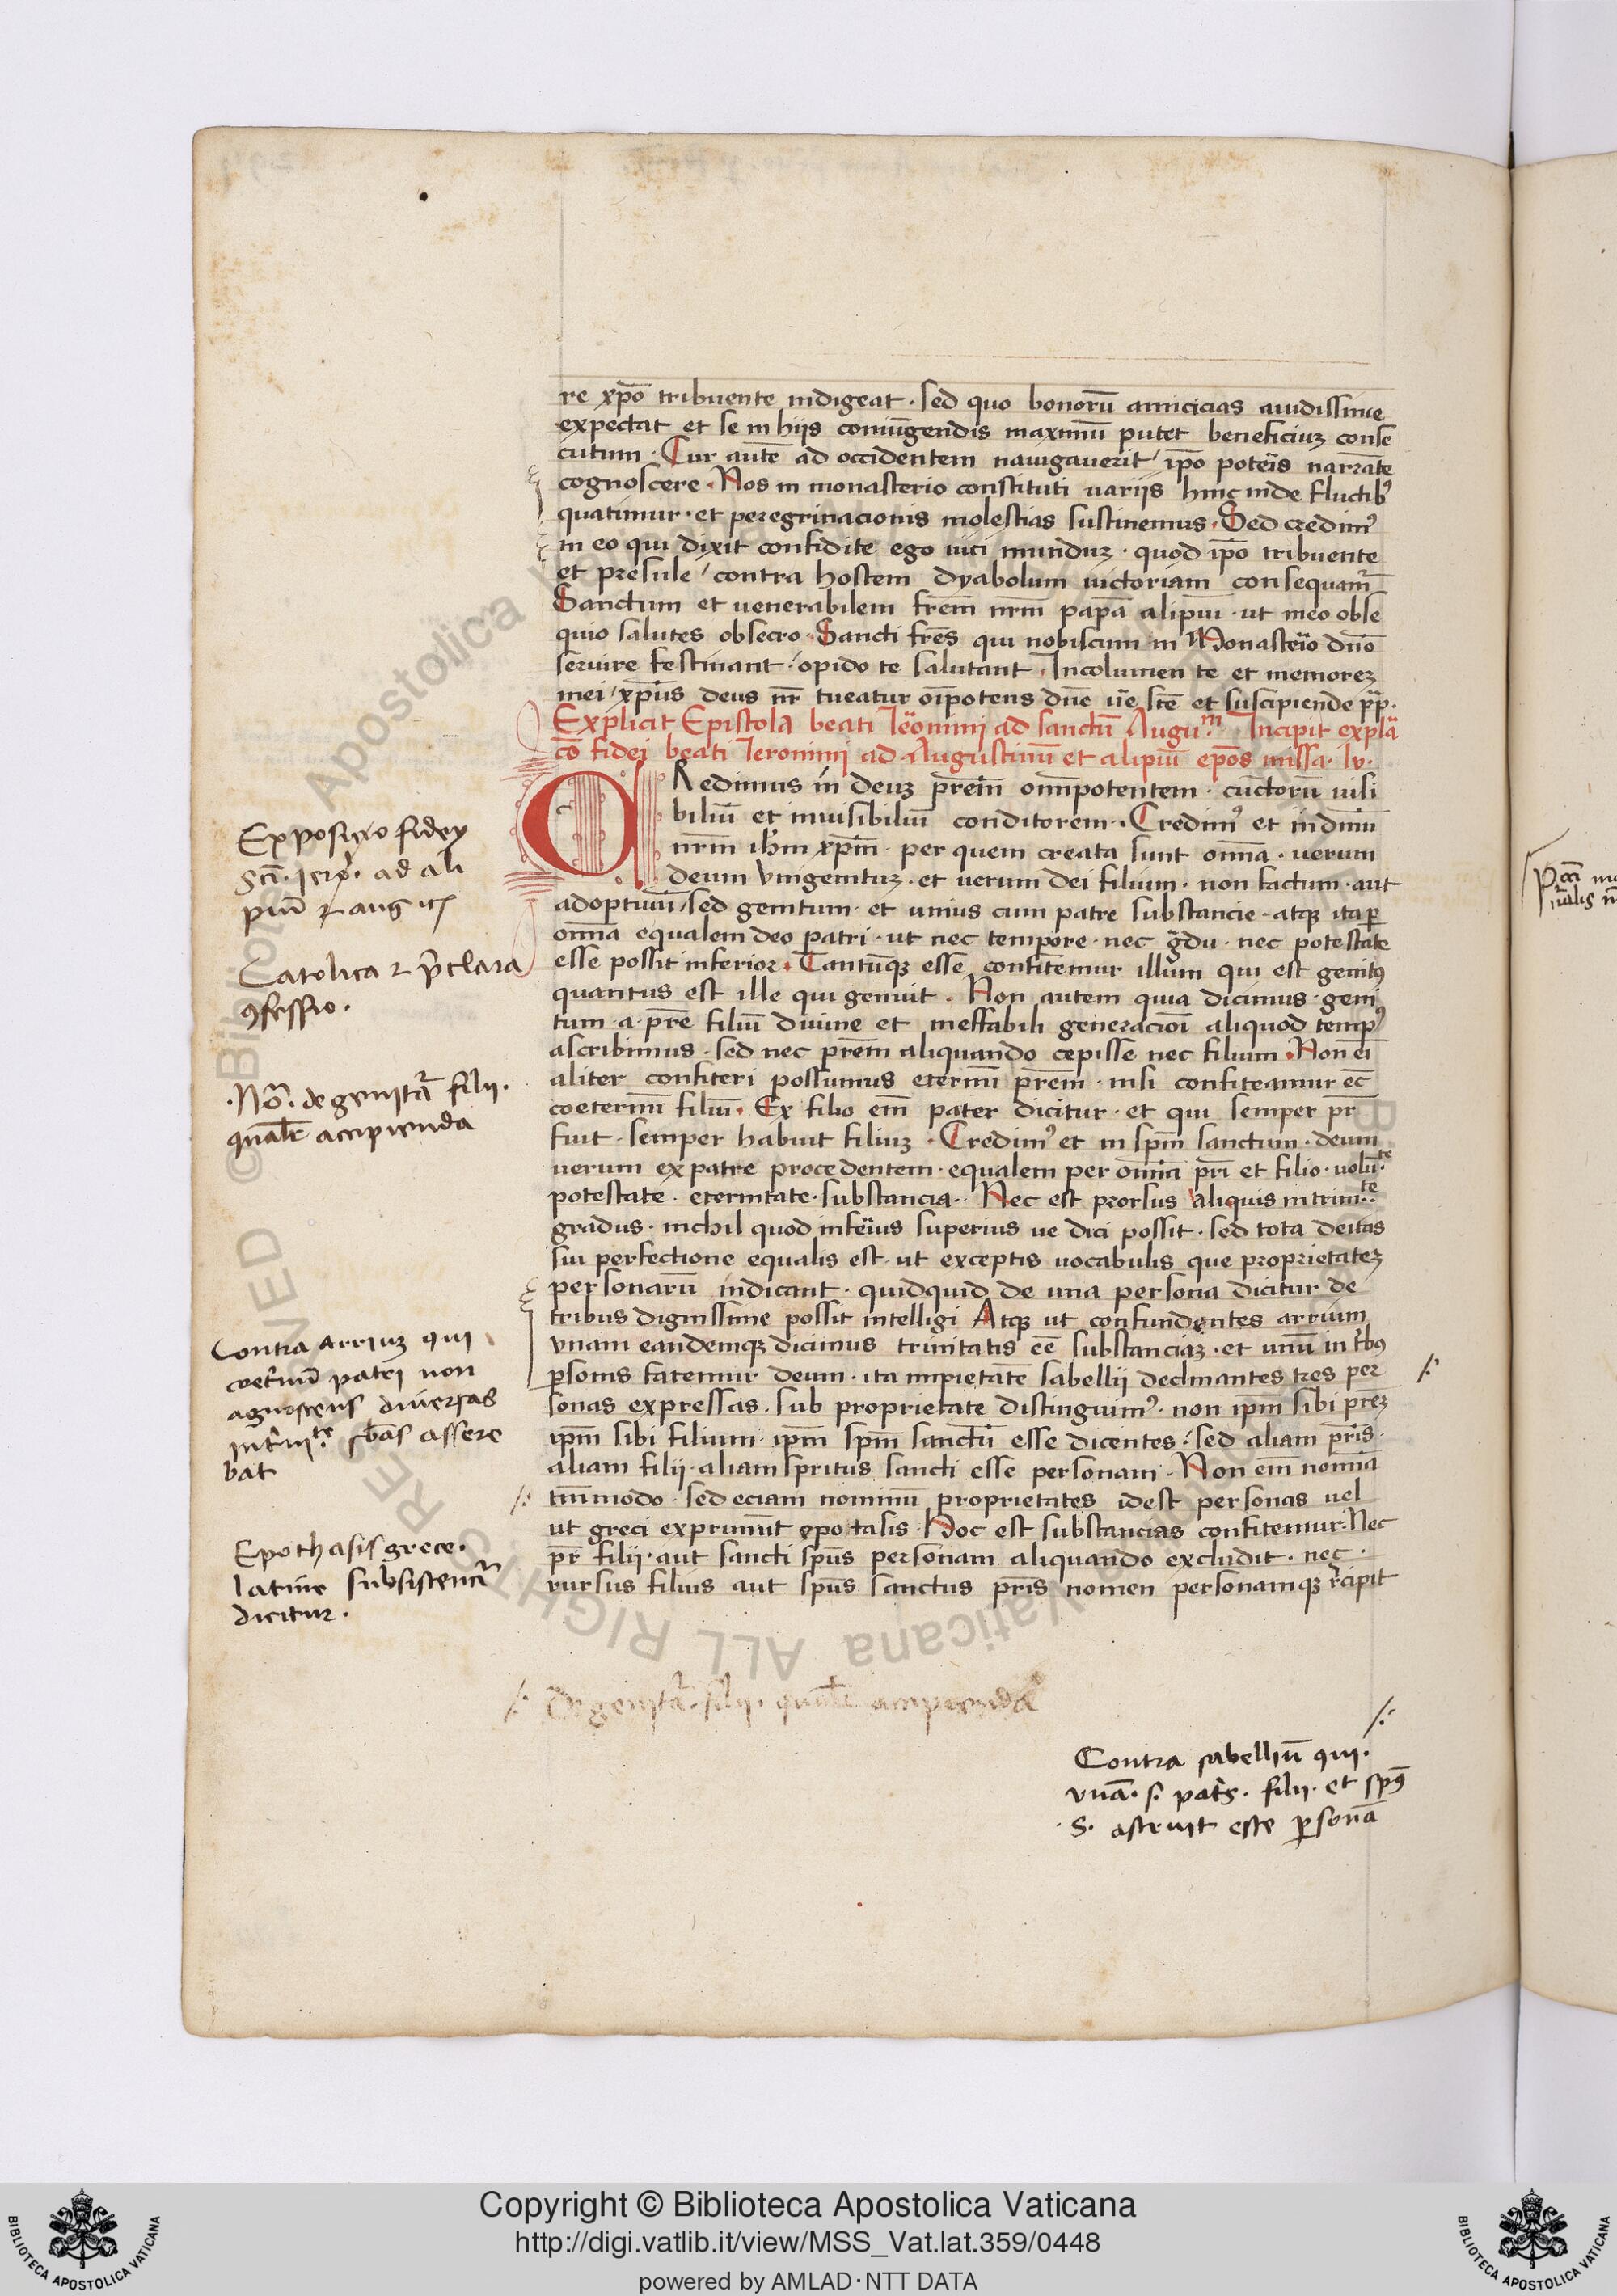 re xp̄o tribuente indigeat · sed quo bonorū amicicias auidissime
expectat et se in hiis coniūgendis maximū putet beneficiuʒ conse
cutum · Cur autē ad occidentem nauigauerit / ip̄o poteris narrāte
cognoscere · Nos in monasterio constituti uariis hinc inde fluctibꝰ
quatimur · et peregrinacionis molestias sustinemus · Sed credimꝰ
in eo qui dixit confidite ego uici munduʒ · quod ip̄o tribuente
et presule / contra hostem dyabolum uictoriam consequamr̄
Sanctum et uenerabilem frēm nrm̄ papā alipiū · ut meo obse
quio salutes obsecro · Sancti frēs qui nobiscum in Monasterio dn̄o
seruire festinant · opido te salutant · Incolumen te et memoreʒ
mei / xp̄us deus nr̄ tueatur oīpotens dn̄e ue͞ ste͞ et suscipiende p̄p ·
Explicit Epistola beati Ieronimi ad sanctū Augu·m Incipit explā
cō fidei beati Ieronimi ad Augustinū et alipiū ep̄os missa · lv ·
CRedimus in deuʒ prēm omīpotentem · cūctorū uisi
biliū et inuisibiliū conditorem · Credimꝰ et in dnm̄
nrm̄ ihm̄ xp̄m · per quem creata sunt omīa · verum
deum vnigenituʒ · et uerum dei filium · non factum · aut
adoptiuū / sed genitum · et unius cum patre substancie · atqʒ ita ꝑ
omīa equalem deo patri · ut nec tempore · nec gͣdu · nec potestate
esse possit inferior · Tantūqʒ esse confitemur illum qui est genitꝰ
quantus est ille qui genuit · Non autem quia dicimus · geni
tum · a · prē filiū diuine et ineffabili generacioī aliquod tempꝰ
ascribimus · sed nec prēm aliquando cepisse nec filium · Non eī
aliter confiteri possumus eternū prēm · nisi confiteamur ec̄
coeternū filiū · Ex filio em̄ pater dicitur · et qui semper pr̄
fuit · semper habuit filiuʒ · Credimꝰ et in spm̄ sanctum · deum
uerum ex patre procedentem · equalem per omīa pri͞ et filio · uolū·te
potestate · eternitate · substancia · Nec est prorsus aliquis in trini·te
gradus · nichil quod inferius superius ue dici possit · sed tota deitas
sui perfectione equalis est · ut exceptis uocabulis que proprietateʒ
personarū indicant · quidquid de una persona dicitur de
tribus dignissime possit intelligi Atqʒ ut confundentes arrium
vnam eandemqʒ dicimus trinitatis eē substanciaʒ · et unū in tbꝰ
ꝑsonis fatemur deum · ita impietatē sabellii declinantes tres per
sonas expressas · sub proprietate distinguimꝰ · non ipm̄ sibi prēʒ
ipm̄ sibi filium · ipm̄ spm̄ sanctū esse dicentes · sed aliam pris̄ ·
aliam filii · aliam spritus sancti esse personam · Non em̄ nomīa
tm̄modo · sed eciam nominū proprietates idest personas uel
ut greci exprimūt epo tasis · Hoc est substancias confitemur · Nec
pr̄ filii · aut sancti spūs personam aliquando excludit · nec ·
rursus filius aut spūs sanctus pris̄ nomen personamqʒ rcipit
Exposicio fidey
sc̄i · iero · ad ali
piū et augus
Catolica et p̄clara
ꝯfessio ·
· Nō · de genitͣ filii ·
qualīt accipienda
Contra Arriuʒ qui
coeternū patri non
agnoscens diuersas
in trini·te sbās assere
bat
Epothasis grece ·
latine subsistencͣ
dicitur ·
De genitͣ · filii · qualīt accipienda
Contra sabelliū qui ·
vnā · s · patis · filii · et spꝰ
· S · astruit esse ꝑsonā
Copyright © Biblioteca Apostolica Vaticana
http://digi.vatlib.it/view/MSS_Vat.lat.359/0448
powered by AMLAD·NTT DATA
BIBLIOTECA APOSTOLICA VATICANA
BIBLIOTECA APOSTOLICA VATICANA